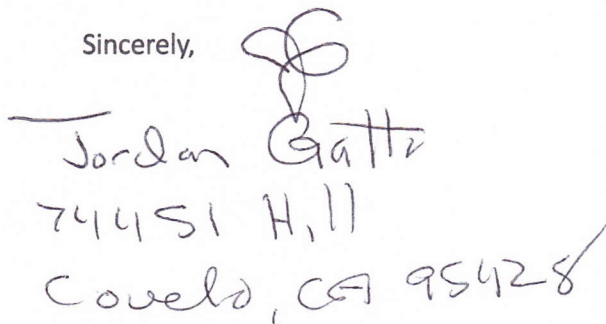 Sincerely,
Jordan Gatto
74451 Hill
Covelo, CA 95428